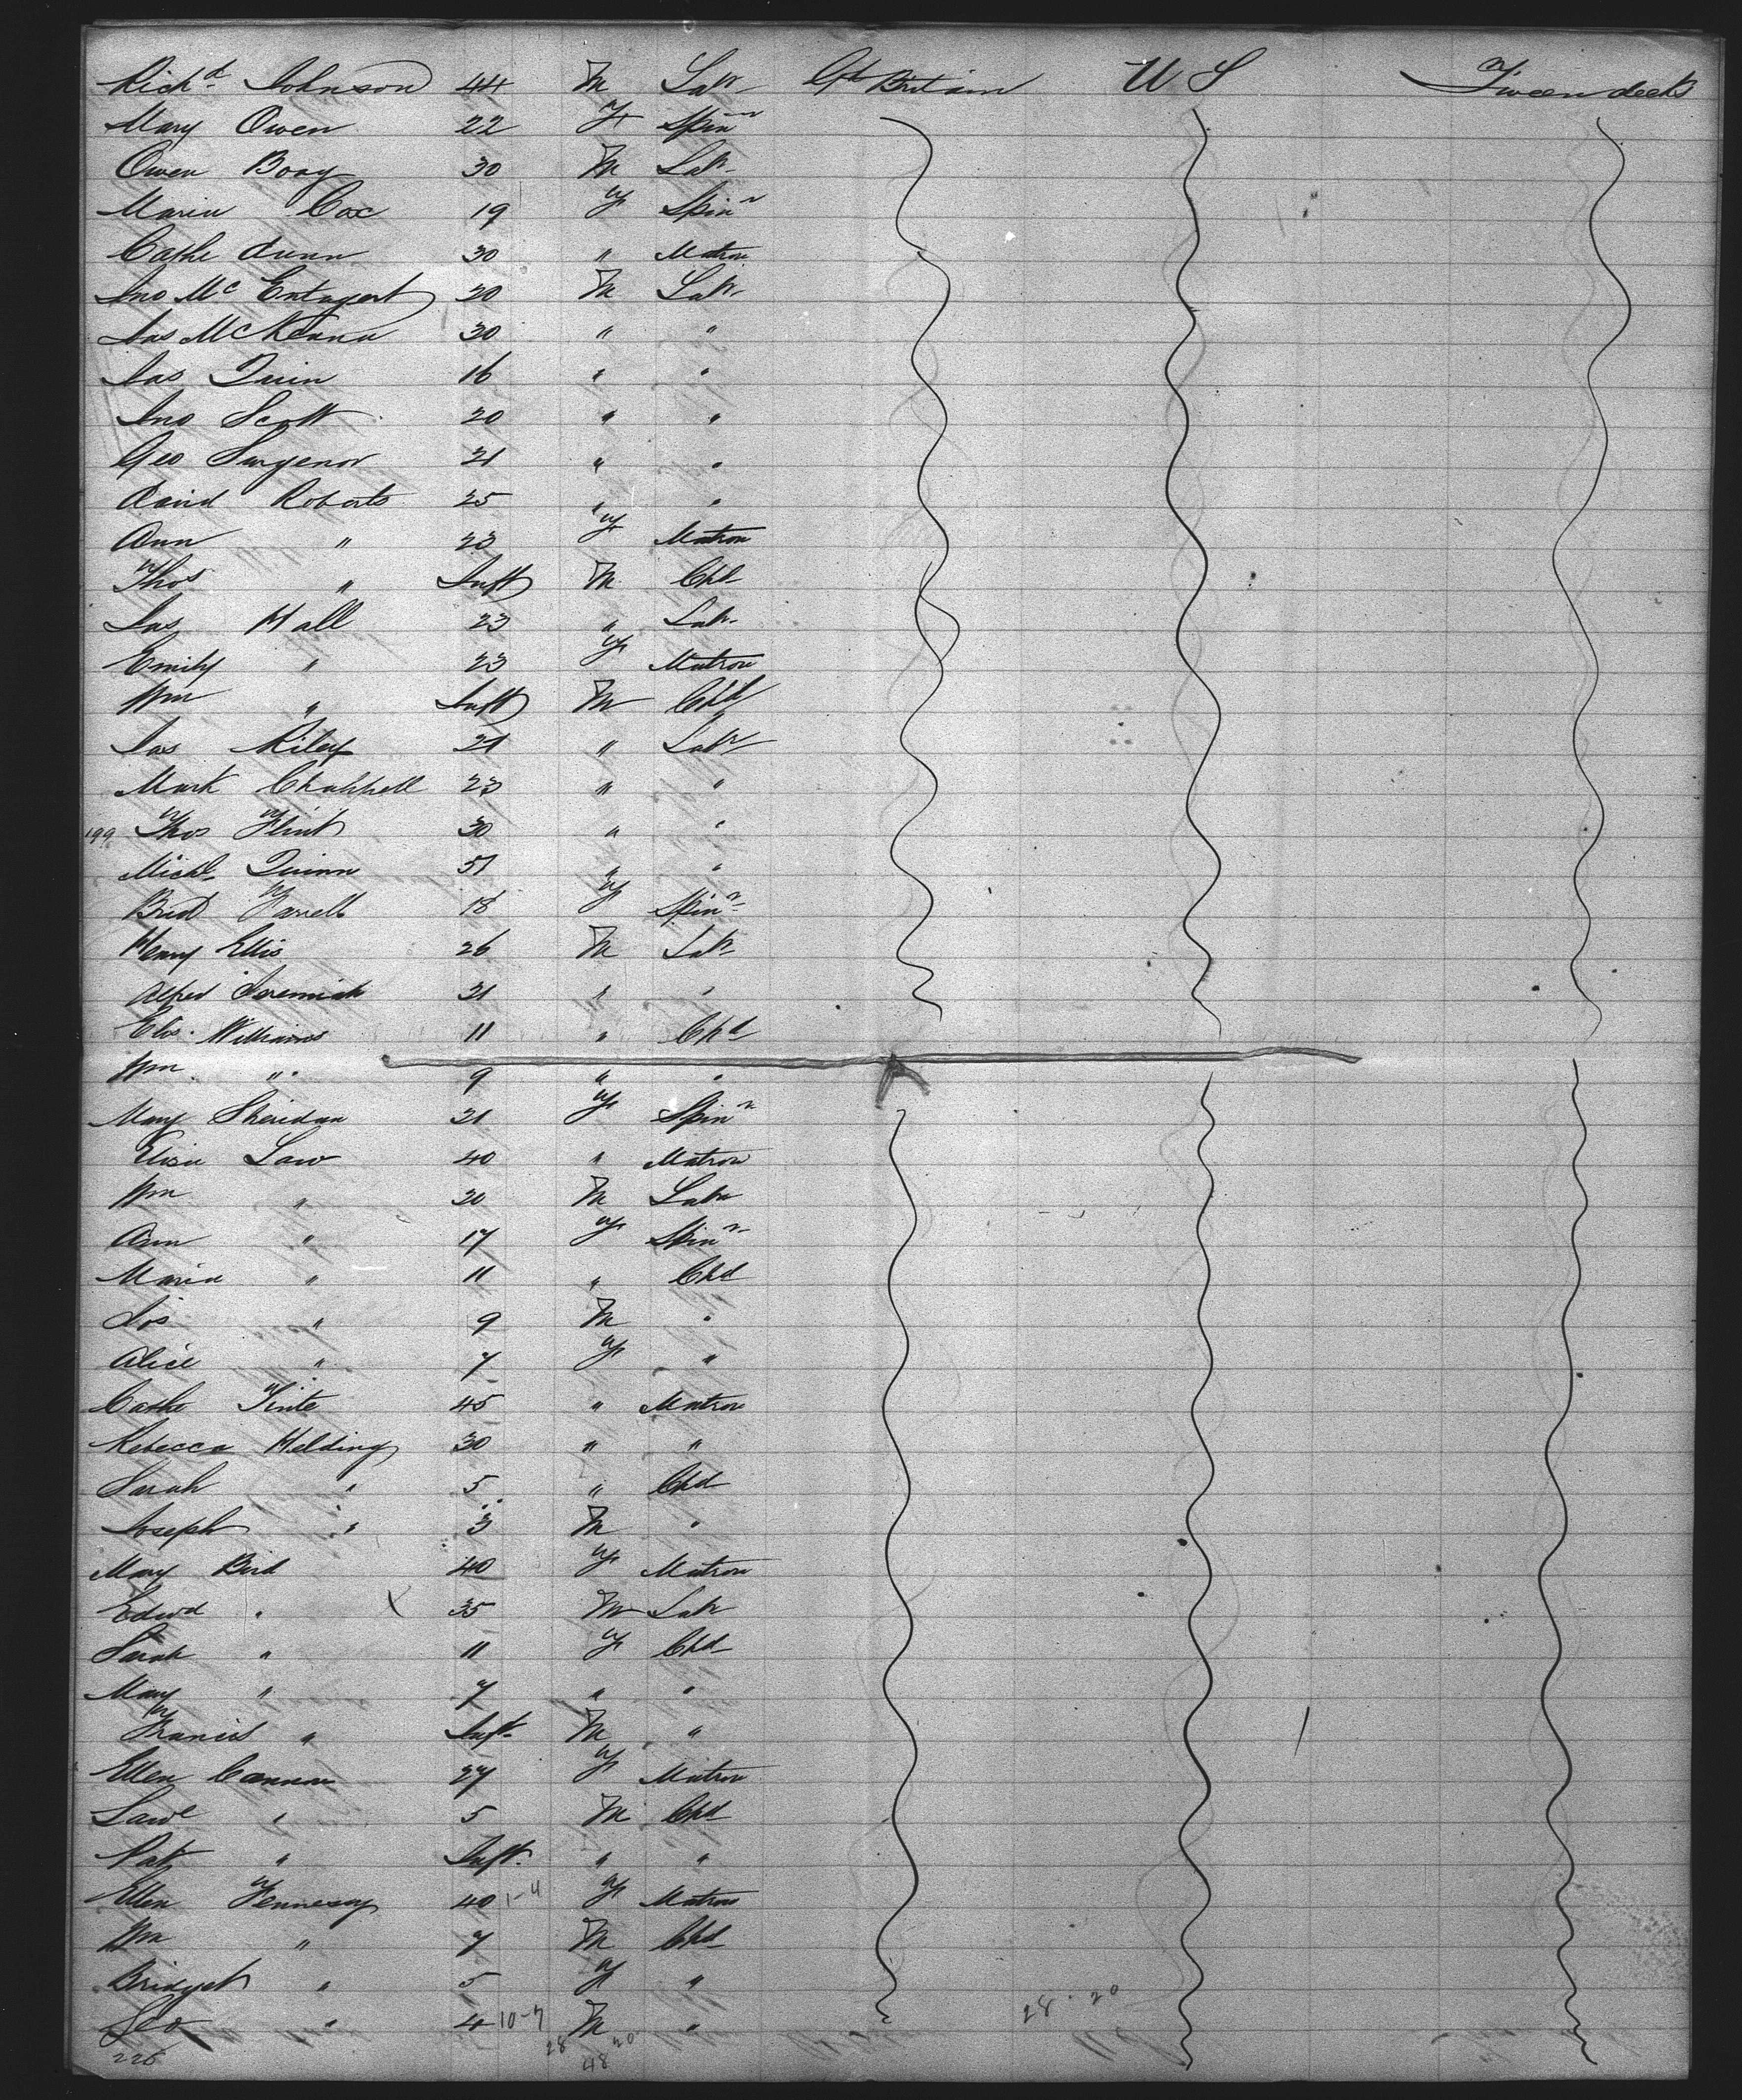 Richd Johnson 44 M Labr Gt Britain U S Tween decks
Mary Owen 22 F Spinr
Owen Boay 30 M Labr
Maria Cox 19 F Spinr
Cathe Dunn 30 " Matron
Jno McEntagert 20 M Labr
Jas McKenna 30 " "
Jas Quin 16 " "
Jno Scott 20 " "
Geo Surgenor 21 " "
David Roberts 25 " "
Ann " 23 F Matron
Thos " Inft M Chd
Jas Hall 23 " Labr
Emily " 23 F Matron
Wm " Inft M Chd
Jas Riley 21 " Labr
Mark Chappell 23 " "
199 Thos Flint 30 " "
Michl Quinn 51 " "
Brid Farrell 18 F Spinr
Henry Ellis 26 M Labr
Alfred Jeremiah 21 " "
Williams 11 " Chd
Wm " 9 " "
Mary Sheridan 21 F Spinr
Eliza Law 40 " Matron
Wm " 20 M Labr
Ann " 17 F Spinr
Maria " 11 " Chd
Jos " 9 M "
Alice " 7 F "
Cathe Tinte 45 " Matron
Rebecca Helding 30 " "
Sarah " 5 " Chd
Joseph " 3 M "
Mary Bird 40 F Matron
Edwd " X 35 M Labr
Sarah " 11 F Chd
Mary " 7 " "
Francis " Inft M "
Ellen Cannon 27 F Matron
Lawe " 5 M Chd
Pat " Inft " "
Ellen Fennesy 40 1-4 F Matron
Wm " 7 M Chd
Bridget " 5 F "
Geo " 4 10-7 M " 28-20
226 28 48 20